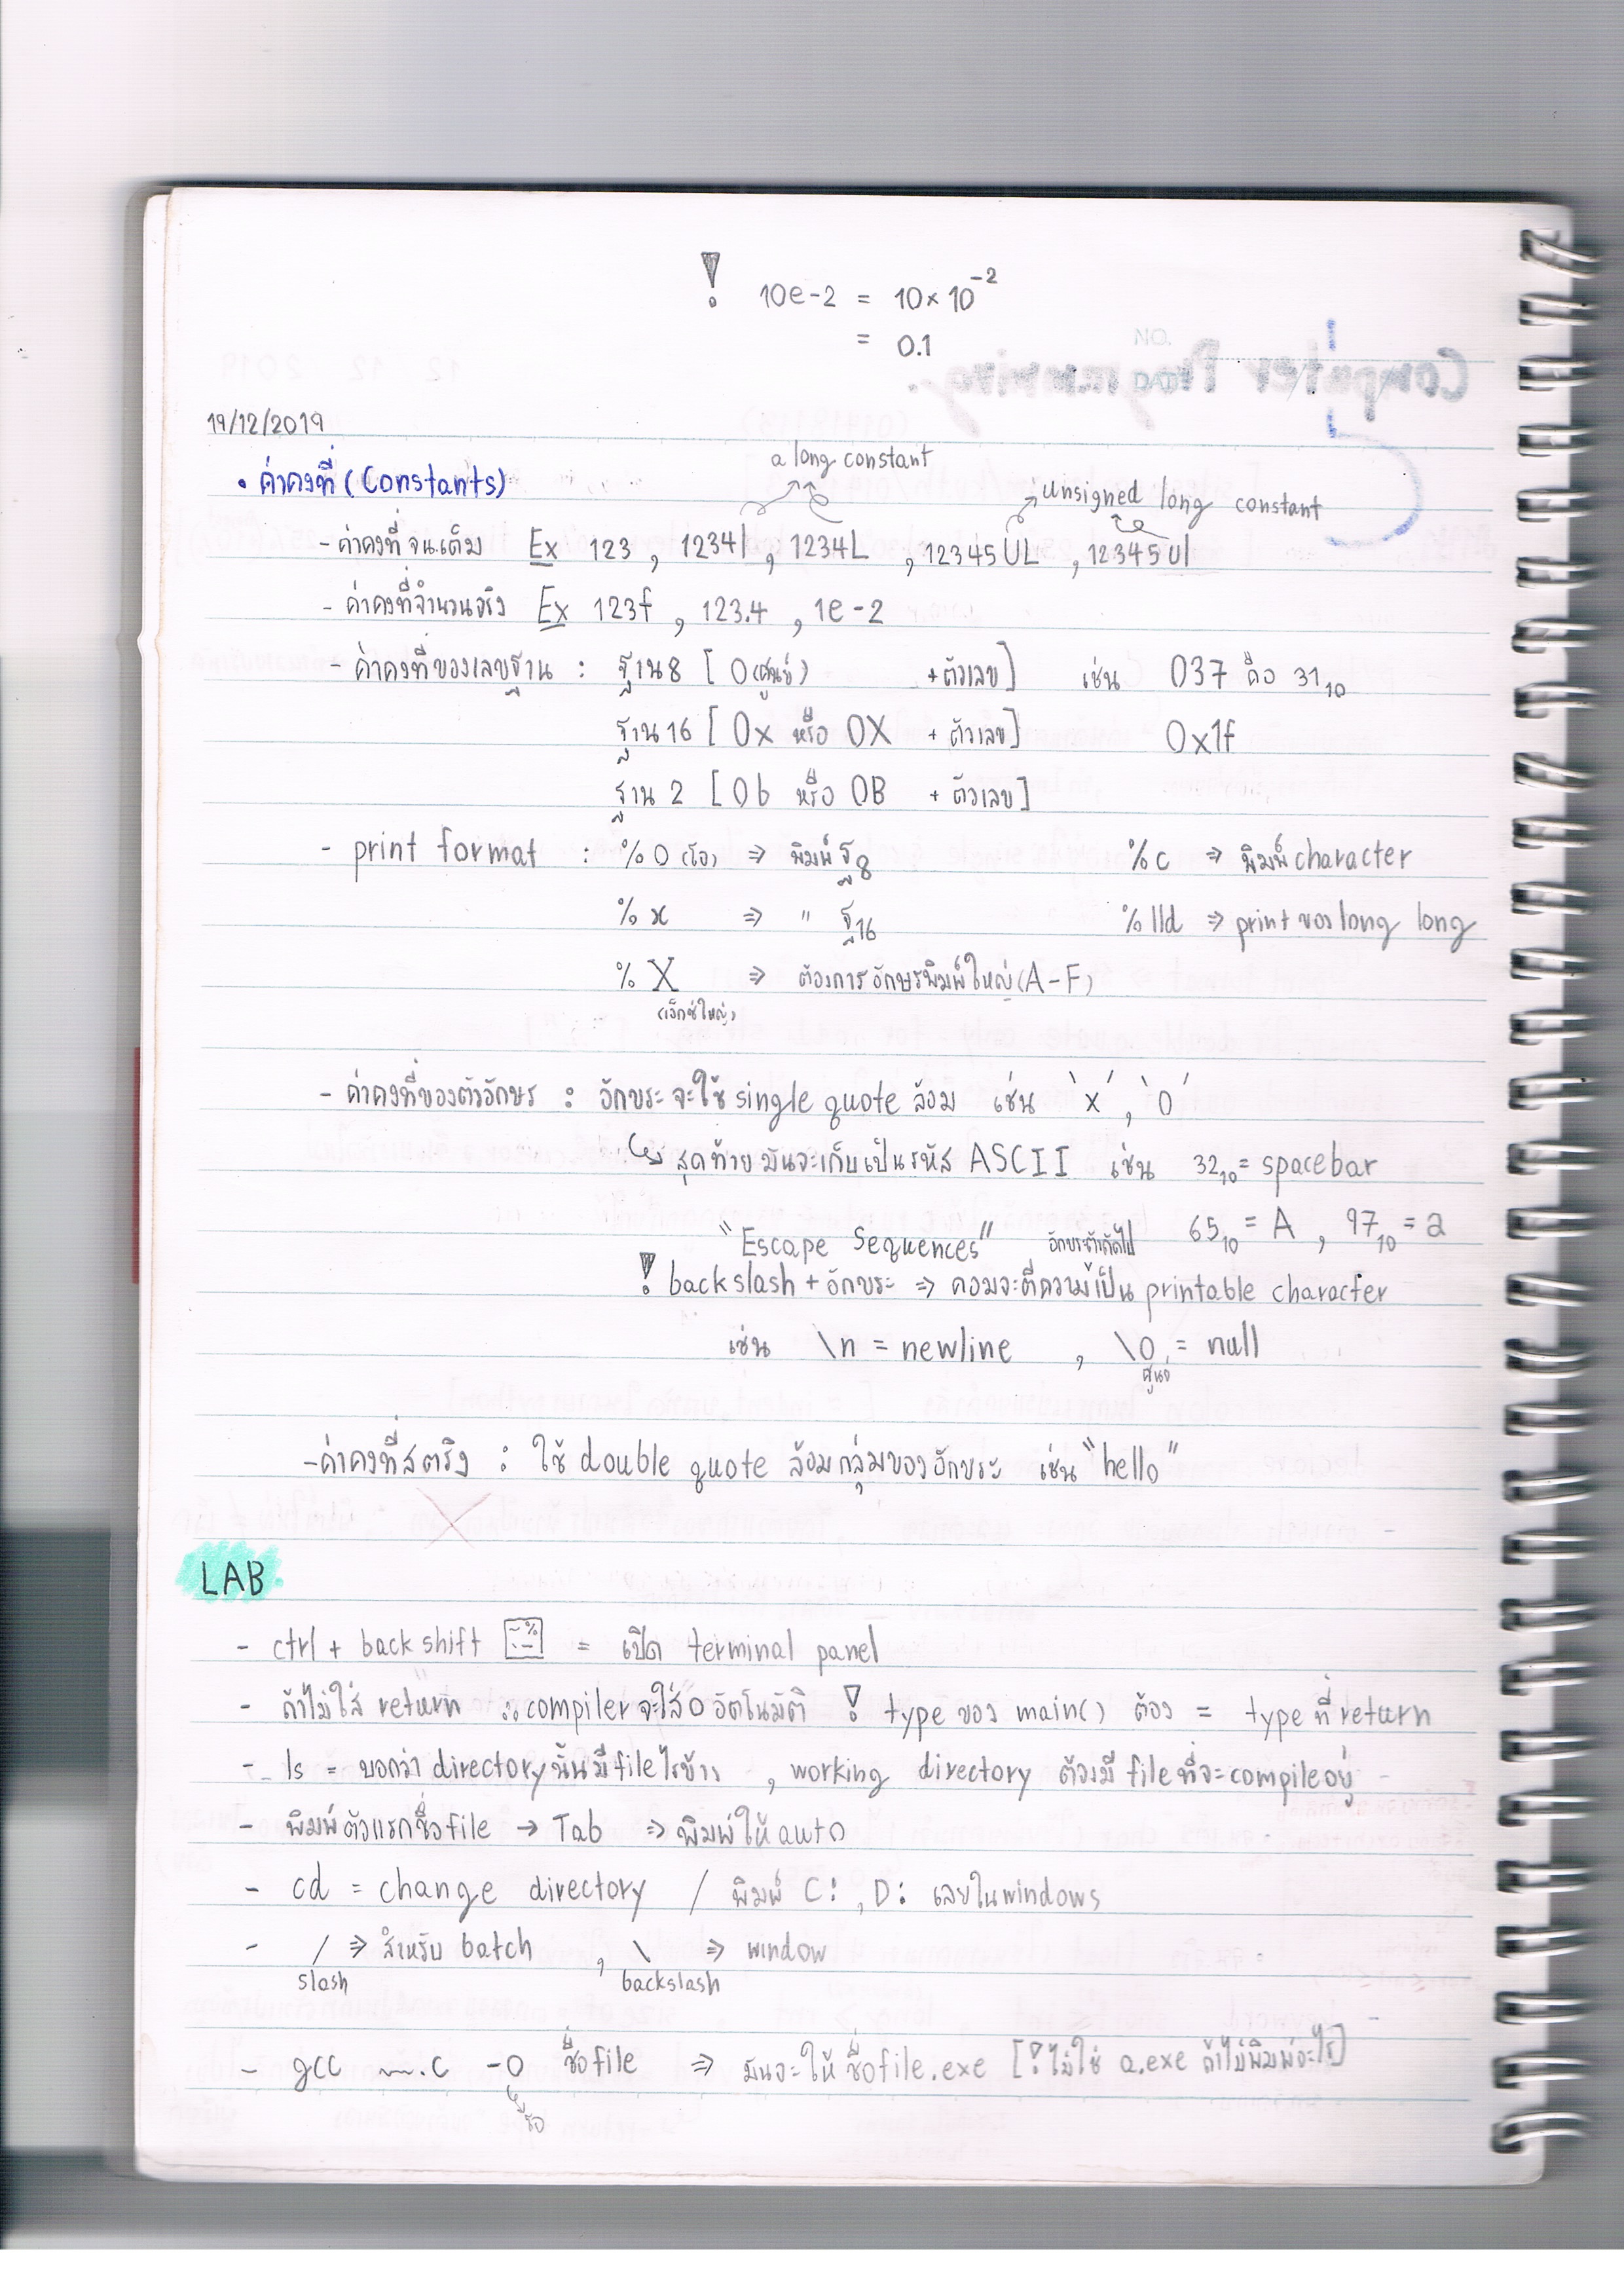 ! 10e-2 = 10×10⁻²
= 0.1
19/12/2019
a long constant
• ค่าคงที่ (Constants)
unsigned long constant
- ค่าคงที่จนเต็ม Ex 123 , 1234l , 1234L , 12345UL , 12345ul
- ค่าคงที่จำนวนจริง Ex 123f , 123.4 , 1e-2
- ค่าคงที่ของเลขฐาน : ฐาน 8 [ 0 (ศูนย์) + ตัวเลข ] เช่น 037 คือ 31₁₀
ฐาน 16 [ 0x หรือ 0X + ตัวเลข ] 0x1f
ฐาน 2 [ 0b หรือ 0B + ตัวเลข ]
- print format : %o (โอ) ⇒ พิมพ์ ฐ8 %c ⇒ พิมพ์ character
%x ⇒ " ฐ16 %lld ⇒ print ของ long long
%X ⇒ ต้องการอักษรพิมพ์ใหญ่ (A-F)
(เอ็กซ์ใหญ่)
- ค่าคงที่ของตัวอักษร : อักขระจะใช้ single quote ล้อม เช่น 'x' , '0'
↳ สุดท้ายมันจะเก็บเป็นรหัส ASCII เช่น 32₁₀ = spacebar
65₁₀ = A , 97₁₀ = a
"Escape Sequences" อักขระตัวถัดไป
! backslash + อักขระ ⇒ คอมจะตีความเป็น printable character
เช่น \n = newline , \0 = null
ศูนย์
- ค่าคงที่สตริง : ใช้ double quote ล้อมกลุ่มของอักขระ เช่น "hello"
LAB
- ctrl + backshift = เปิด terminal panel
- ถ้าไม่ใส่ return ∴ compiler จะใส่ 0 อัตโนมัติ ! type ของ main() ต้อง = type ที่ return
- ls = บอกว่า directory นั้นมี file ไรบ้าง , working directory ต้องมี file ที่จะ compile อยู่
- พิมพ์ตัวแรกชื่อ file → Tab ⇒ พิมพ์ให้ auto
- cd = change directory / พิมพ์ C: , D: เลยใน windows
- / ⇒ สำหรับ batch , \ ⇒ window
slash backslash
- gcc ~~.c -o ชื่อ file ⇒ มันจะให้ ชื่อ file.exe [! ไม่ใช่ a.exe ถ้าไม่พิมพ์อะไร]
ชื่อ